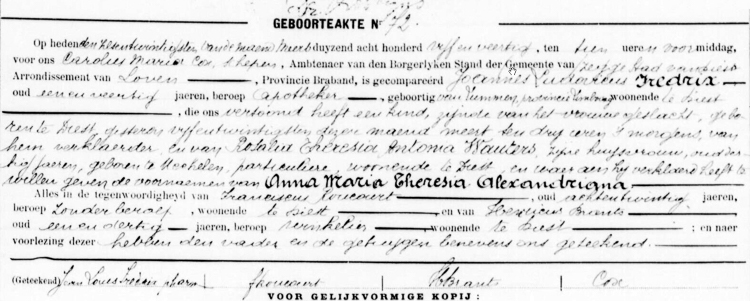 GEBOORTEAKTE Nº 72.
Op heden den zesentwintigsten van de maend Meert duyzend acht honderd vyffenveertig, ten tien ueren voormiddag,
voor ons Carolus Maria Cox, schepen, Ambtenaer van den Borgerlyken Stand der Gemeente van Stad
Arrondissement van Loven, Provincie Braband, is gecompareërd Joannes Ludovicus Fredrix
oud eenenveertig jaeren, beroep Apotheker, geboortig van Lummen, provincie Limburg woonende te Diest
, die ons vertoond heeft een kind, zynde van het vrouwe geslacht, gebo
ren te Diest, gisteren vyffentwintigsten dezer maend meert ten dry uren 's morgens, van
hem verklaerder, en van Rosalia Theresia Antonia Wauters, zyne huysvrouw, oud der
tig jaeren, geboren te Mechelen, particuliere, woonende te Diest, en waer aen hy verklaerd heeft te
willen geven de voornaemen van Anna Maria Theresia Alexandrigna
Alles in de tegenwoordigheyd van Franciscus Foucart, oud achtentwintig jaeren,
beroep zonder beroep, woonende te Diest, en van Henricus Brants
oud eenendertig jaeren, beroep winkelier, woonende te Diest; en naer
voorlezing dezer hebben den vader en de getuygen benevens ons geteekend.
(Geteekend) Jean Louis Fredrix pharm Brants Cox
VOOR GELIJKVORMIGE KOPIJ :